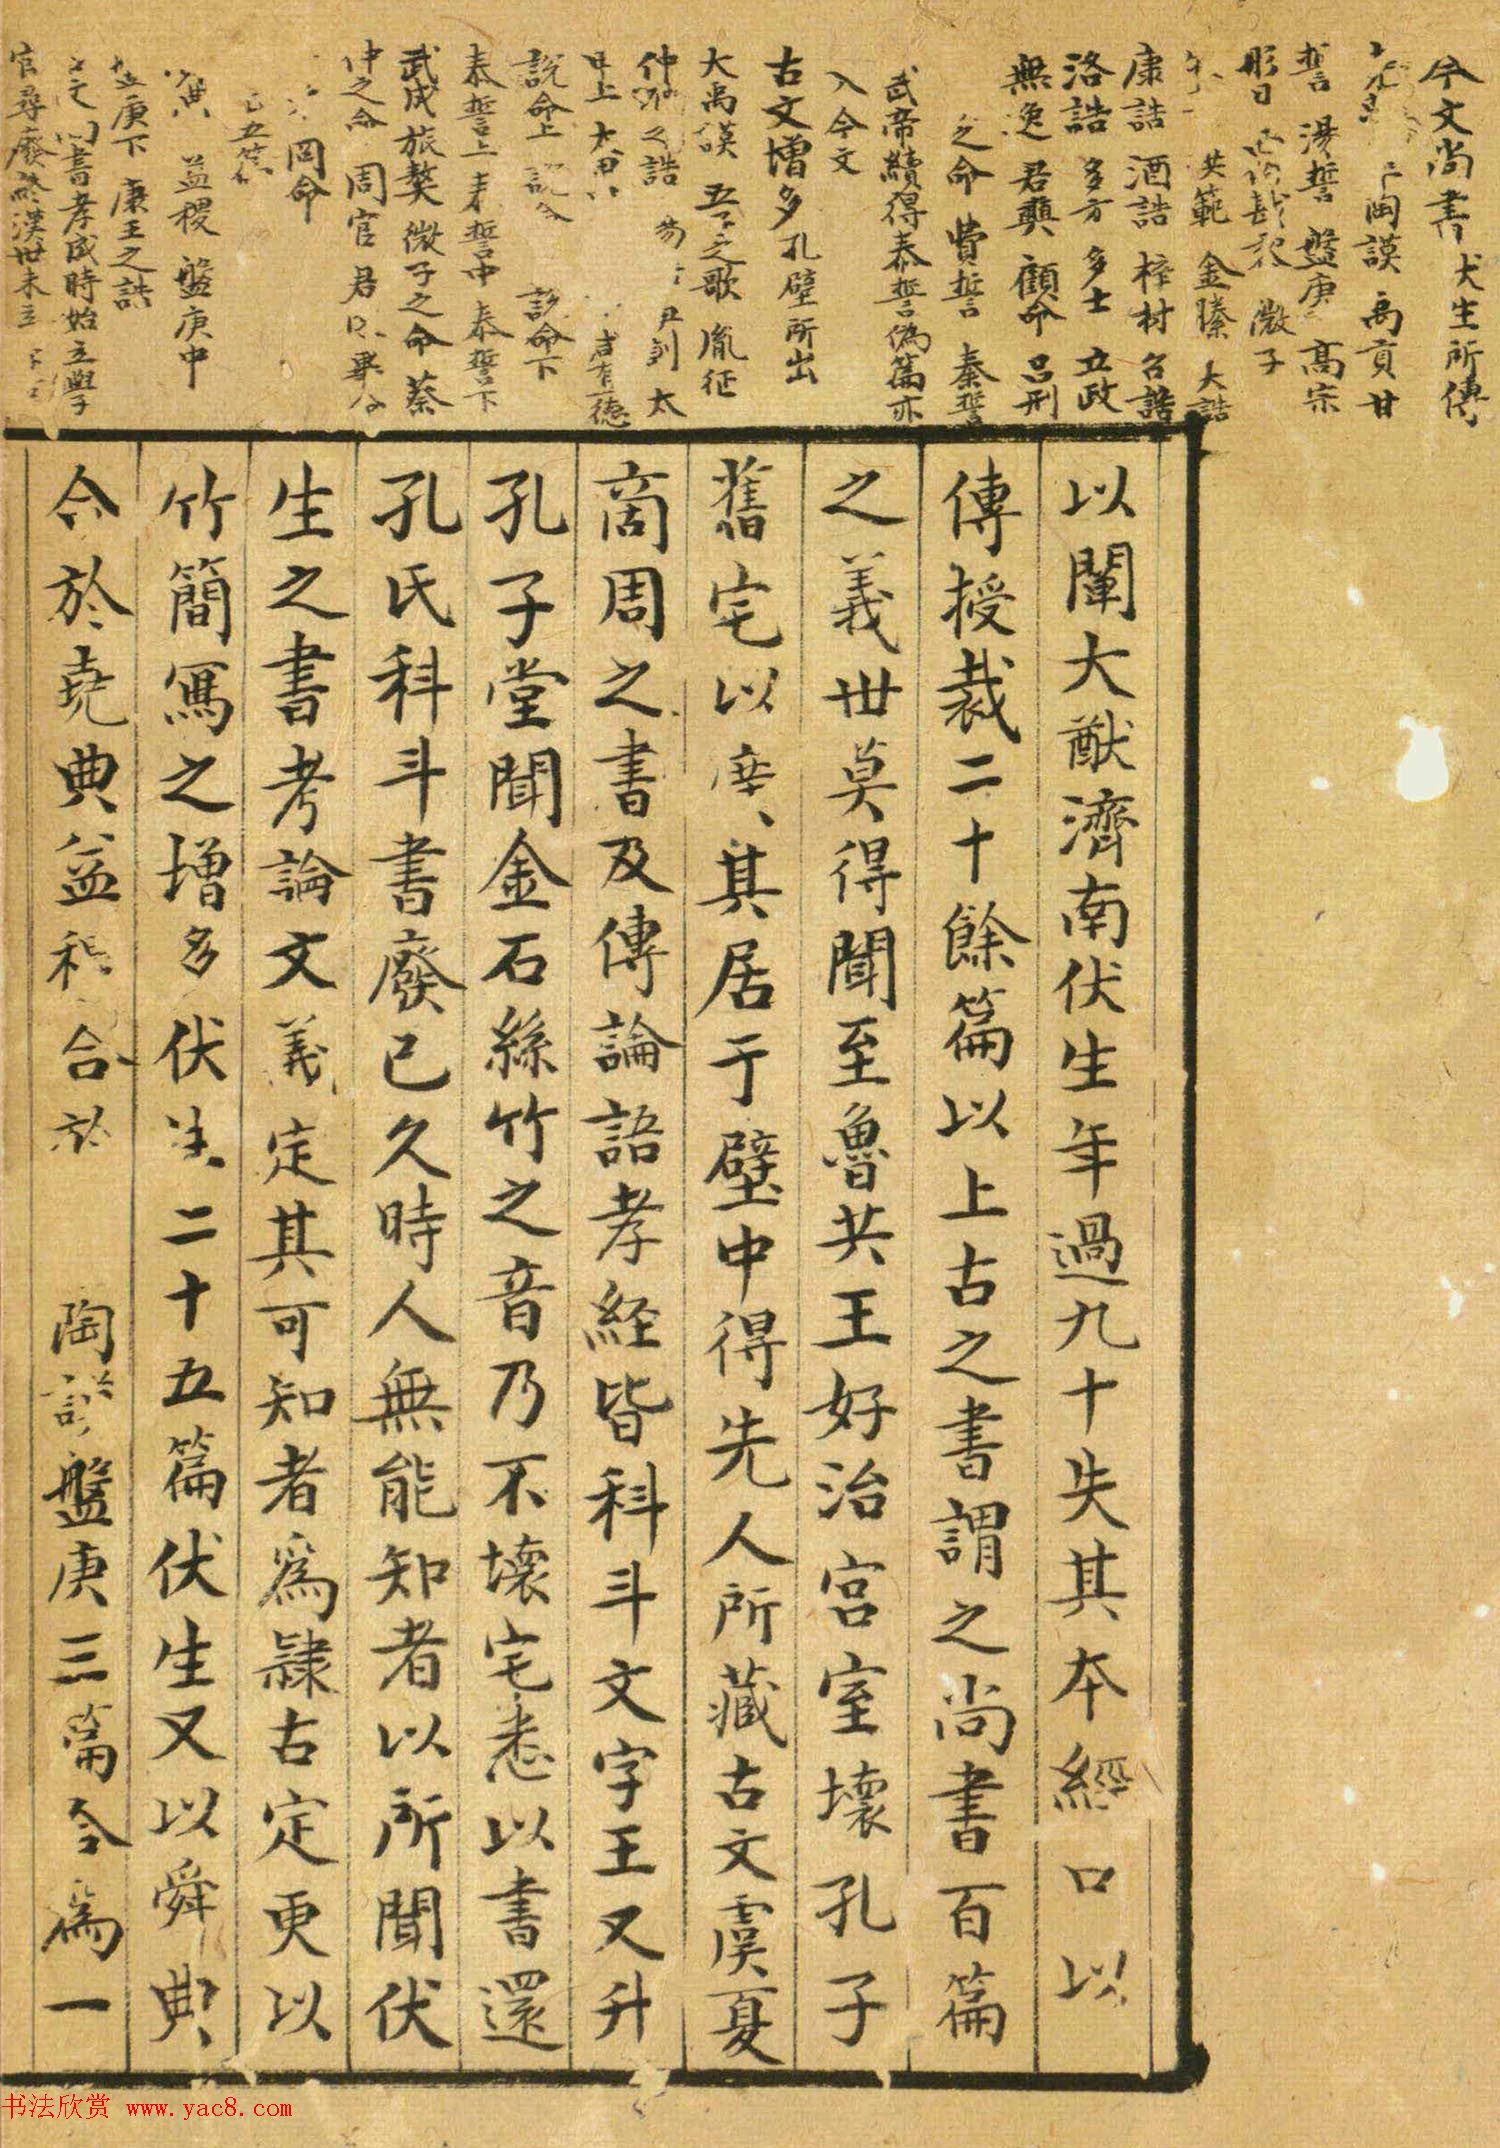 今文尚書 伏生所傳
陶謨 禹貢 甘
誓 湯誓 盤庚 高宗
肜日 西伯戡黎 微子
洪範 金縢 大誥
康誥 酒誥 梓材 召誥
洛誥 多方 多士 立政
無逸 君奭 顧命 呂刑
之命 費誓 秦誓
武帝續得泰誓偽篇亦
入今文
古文增多 孔壁所出
大禹謨 五 之歌 胤征
仲 之誥 太
甲上 太甲 咸有一德
說命上 說命 說命下
泰誓上 泰誓中 泰誓下
武成 旅獒 微子之命 蔡
仲之命 周官 君
冏命
五篇
益稷 盤庚中
盤庚下 康王之誥
書孝成時始立學
官尋廢終漢世未立
以闡大猷濟南伏生年過九十失其本經口以
傳授裁二十餘篇以上古之書謂之尚書百篇
之義世莫得聞至魯共王好治宮室壞孔子
舊宅以廣其居于壁中得先人所藏古文虞夏
商周之書及傳論語孝経皆科斗文字王又升
孔子堂聞金石絲竹之音乃不壞宅悉以書還
孔氏科斗書廢已久時人無能知者以所聞伏
生之書考論文義定其可知者為隸古定更以
竹簡寫之增多伏生二十五篇伏生又以舜典
合於堯典益稷合於 陶謨盤庚三篇合為一
书法欣赏 www.yac8.com